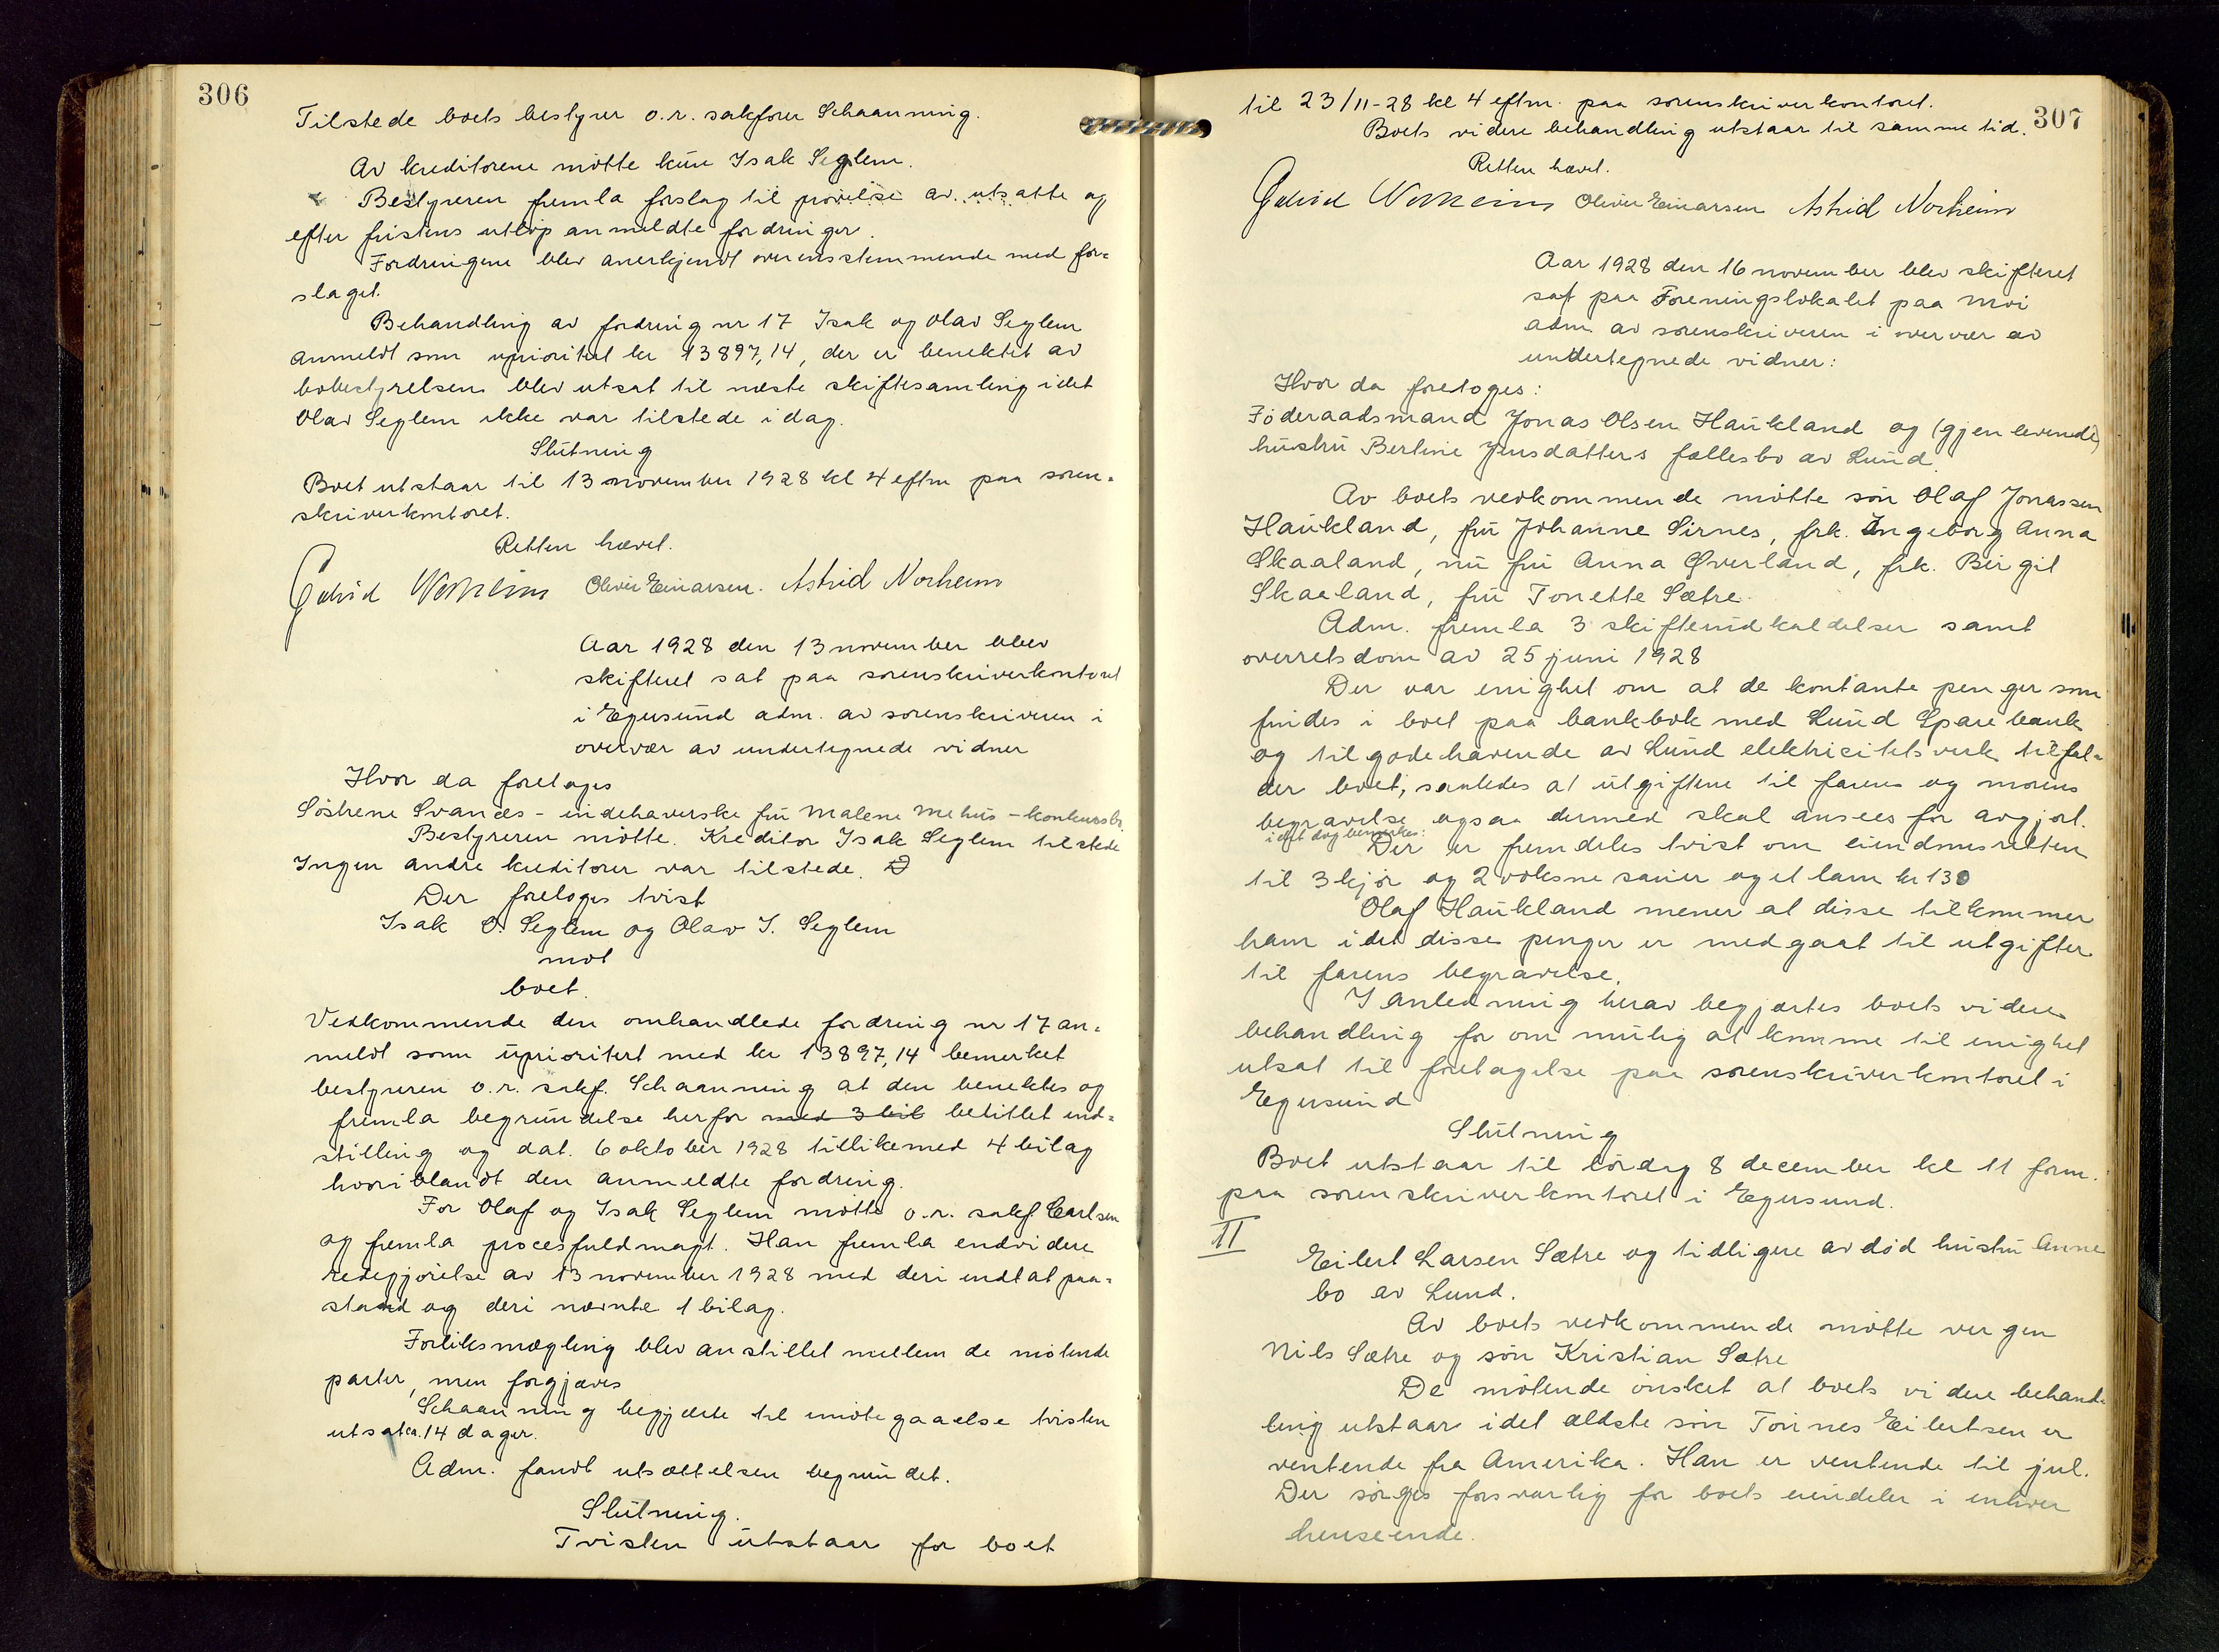 306
Tilstede boets bestyrer o.r. sakfører Schaanning.
Av kreditorene møtte kun Isak Seglem.
Bestyreren fremla forslag til prøvelse av utsatte og
efter fristens utløp anmeldte fordringer.
Fordringene blev anerkjendt overensstemmende med for-
slaget.
Behandling av fordring nr 17 Isak og Olav Seglem
anmeldt som uprioritert kr 13897,14, der er benektet av
bobestyrelsen blev utsat til næste skiftesamling idet
Olav Seglem ikke var tilstede idag.
Slutning
Boet utstaar til 13 november 1928 kl 4 eftm paa soren-
skriverkontoret.
Retten hævet.
Oliver Einarsen. Astrid Norheim
Aar 1928 den 13 november blev
skifteret sat paa sorenskriverkontoret
i Egersund adm. av sorenskriveren i
overvær av undertegnede vidner
Hvor da foretoges
Søstrene Svanes - indehaverske fru Malene Mehus - konkursbo.
Bestyreren møtte. Kreditor Isak Seglem tilstede
Ingen andre kreditorer var tilstede.
Der foretoges tvist
Isak O. Seglem og Olav I. Seglem
mot
boet.
Vedkommende den omhandlede fordring nr 17 an-
meldt som uprioritert med kr 13897,14 bemerket
bestyreren o.r. sakf. Schaanning at den benektes og
fremla begrundelse herfor med 3 bil betitlet ind-
stilling og dat. 6 oktober 1928 tillikemed 4 bilag
hvoriblandt den anmeldte fordring.
For Olaf og Isak Seglem møtte o.r. sakf. Carlsen
og fremla procesfuldmagt. Han fremla endvidere
redegjørelse av 13 november 1928 med deri indtat paa-
stand og deri nævnte 1 bilag.
Forliksmægling blev anstillet mellem de møtende
parter, men forgjæves
Schaanning begjærte til imøtegaaelse tvisten
utsat ca. 14 dager.
Adm. fandt utsættelsen begrundet.
Slutning.
Tvisten utstaar for boet
307
til 23/11-28 kl 4 eftm. paa sorenskriverkontoret.
Boets videre behandling utstaar til samme tid.
Retten hævet.
Oliver Einarsen Astrid Norheim
Aar 1928 den 16 november blev skifteret
sat paa Foreningslokalet paa Moi
adm. av sorenskriveren i overvær av
undertegnede vidner:
Hvor da foretoges:
Føderaadsmand Jonas Olsen Haukland og (gjenlevende)
hustru Bertine Jensdatters fællesbo av Lund.
Av boets vedkommende møtte søn Olaf Jonassen
Haukland, fru Johanne Sirnes, frk. Ingeborg Anna
Skaaland, nu fru Anna Øverland, frk. Birgit
Skaaland, fru Tonette Sætre.
Adm. fremla 3 skifteindkaldelser samt
overretsdom av 25 juni 1928
Der var enighet om at de kontante penger som
findes i boet paa bankbok med Lund Sparebank
og tilgodehavende av Lund elektricitetsverk tilfal-
der boet, saaledes at utgiftene til farens og morens
begravelse ogsaa dermed skal ansees for avgjort.
idet dog bemerkes:
Der er fremdeles tvist om eiendomsretten
til 3 kjør og 2 voksne sauer og et lam kr 130
Olaf Haukland mener at disse tilkommer
ham idet disse penger er medgaat til utgifter
til farens begravelse.
I anledning herav begjærtes boets videre
behandling for om mulig at komme til enighet
utsat til foretagelse paa sorenskriverkontoret i
Egersund
Slutning
Boet utstaar til lørdag 8 december kl 11 form.
paa sorenskriverkontoret i Egersund.
II
Eilert Larsen Sætre og tidligere avdød hustru Anne
bo av Lund.
Av boets vedkommende møtte vergen
Nils Sætre og søn Kristian Sætre
De møtende ønsket at boets videre behand-
ling utstaar idet ældste søn Tønnes Eilertsen er
ventende fra Amerika. Han er ventende til jul.
Der sørges forsvarlig for boets eiendeler i enhver
henseende.